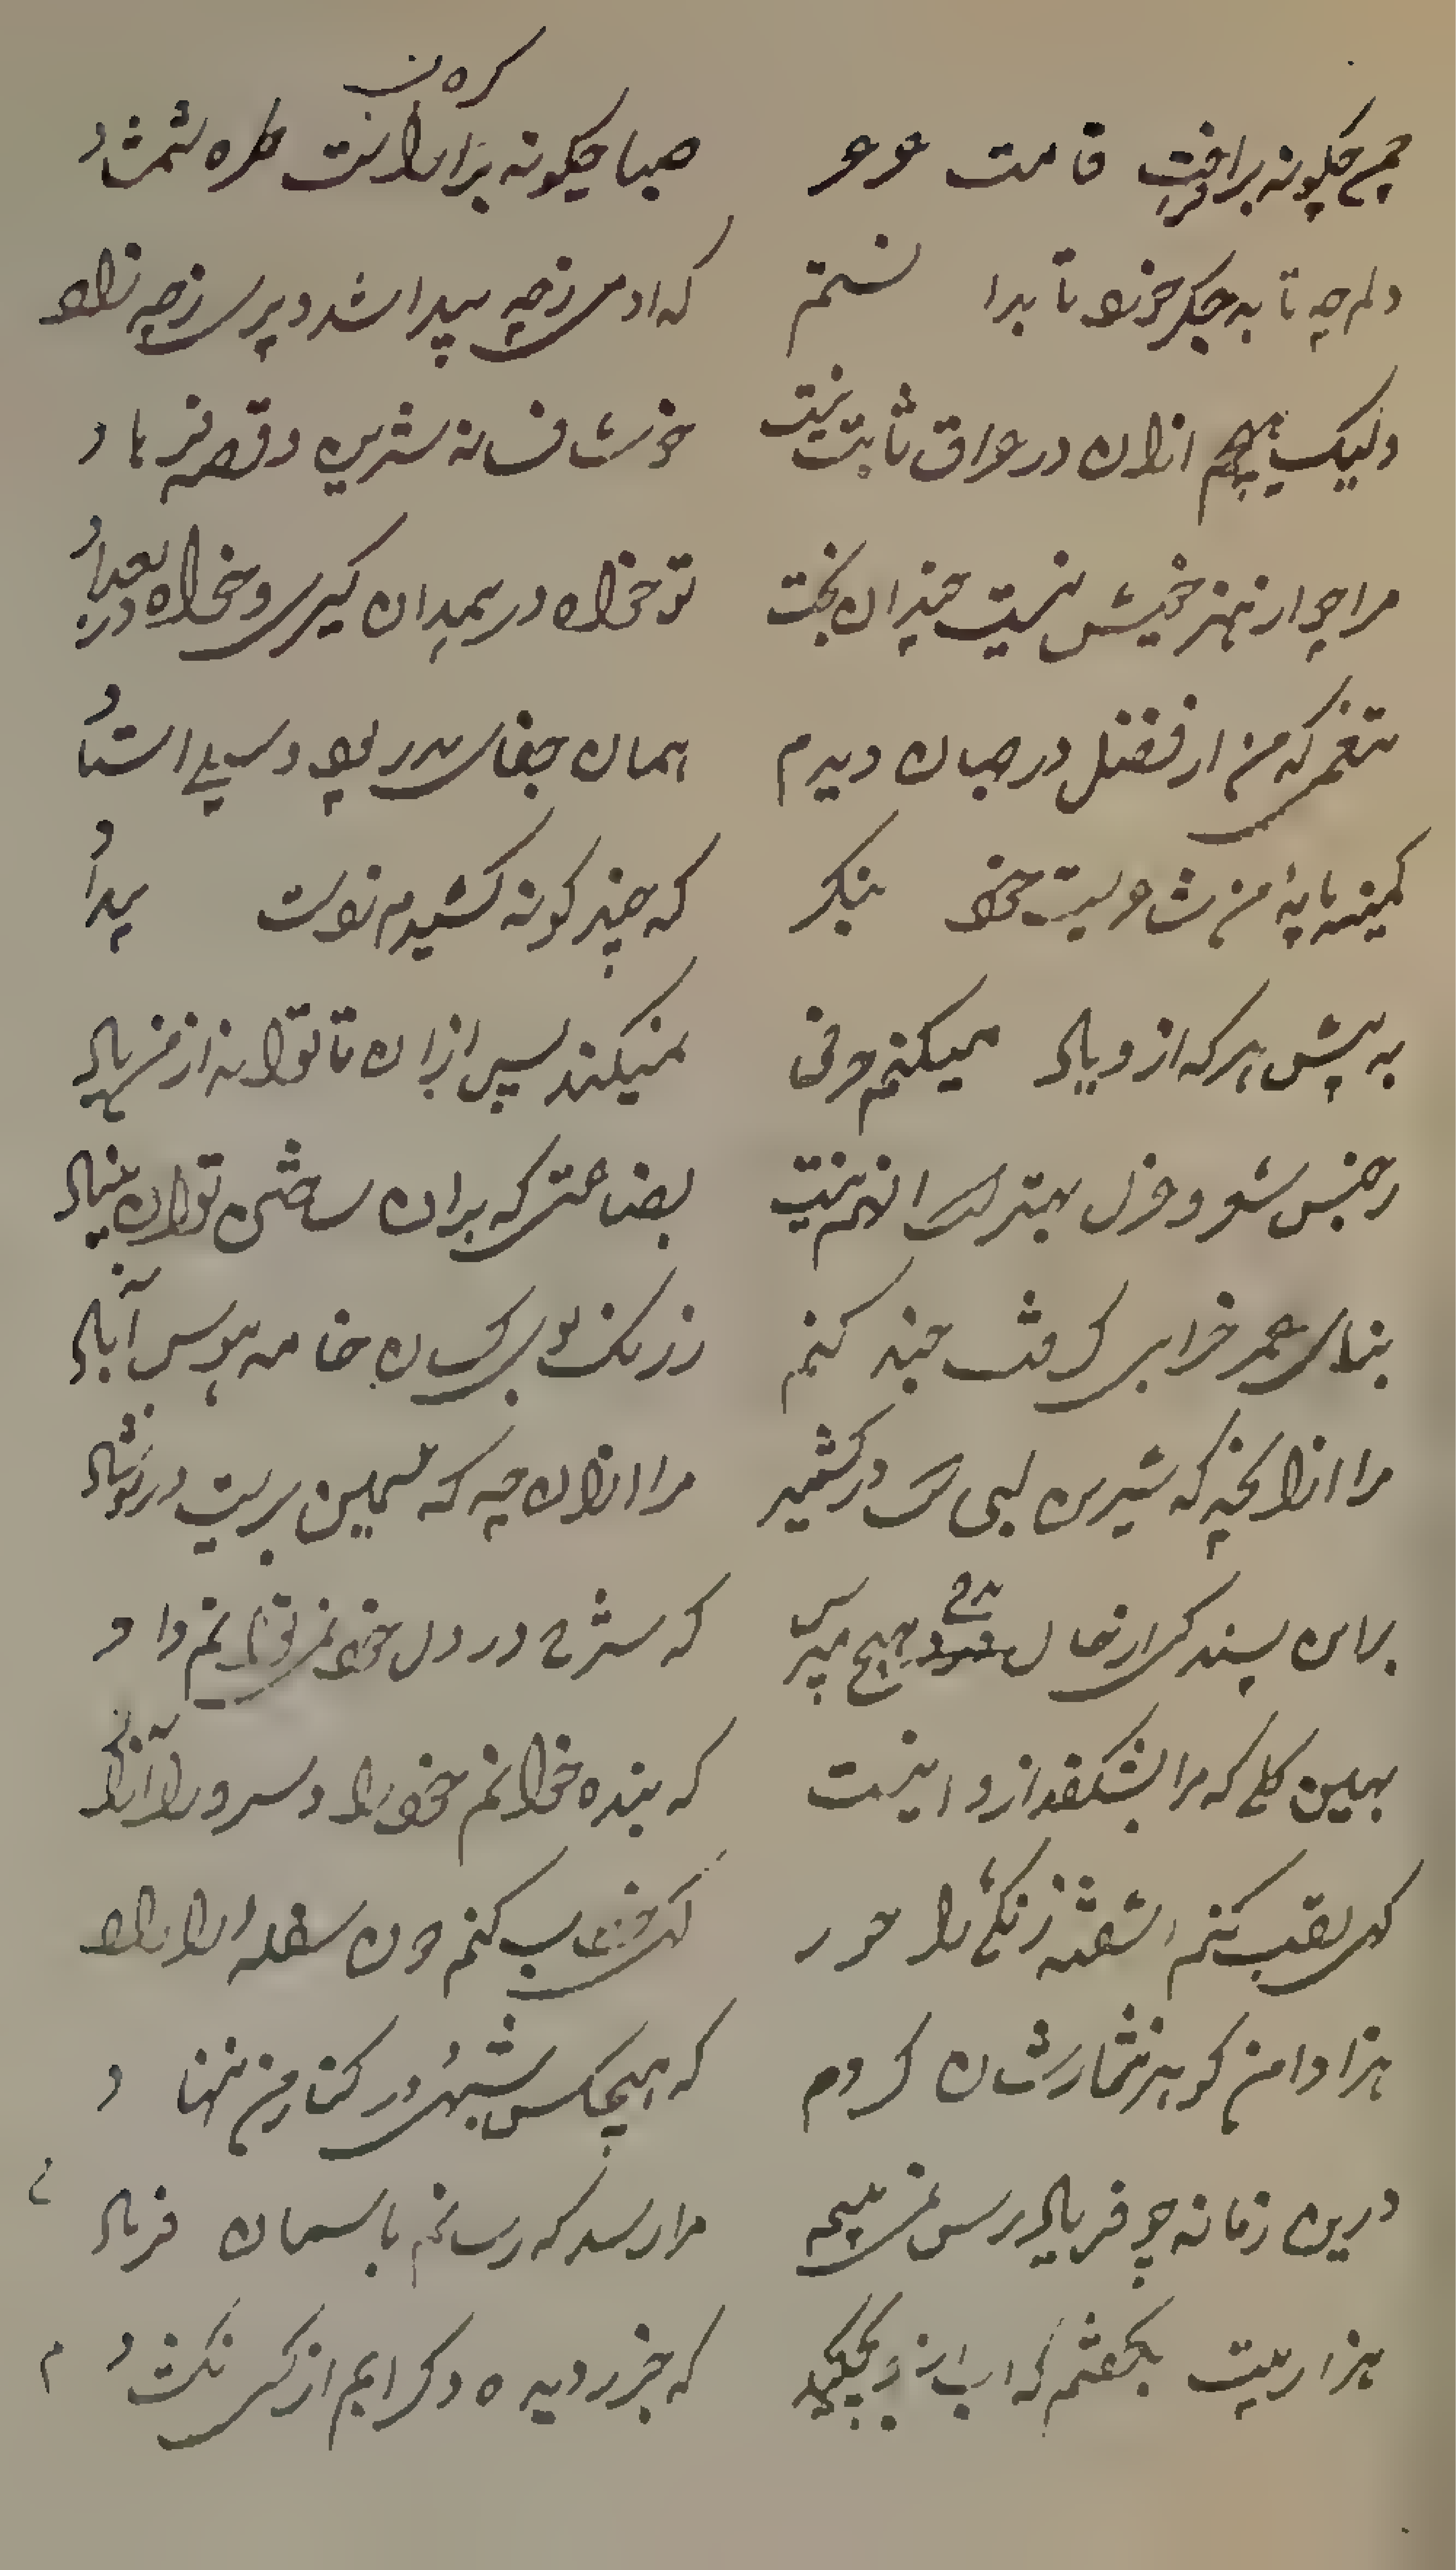 کرەن
چمن چگونه برافراخت قامت عرعر صبا چگونه بیاراست طره شمشاد
دلم چه تا به جگر خون تا بدانستم که ادمی زچه پیدا شد و پری زچه زاد
ولیک هیچم ازان در عراق ثابت نیست خوشت فسانه شیرین و قصه فرهاد
مرا چو از هنر خویش نیست چندان بخت تو خواه در همدان گیری و خواه در بغداد
تنعمی که من از فضل در جهان دیدم همان جفای پدر بود و سیلی استاد
کمینه پایه من شاعریست خود بنگر که چند گونه کشیدم زدست بیداد
به پیش هر که ازو یاد میکنم حرفی نمیکند پس ازان تا تواند از من یاد
زجنس شعر و غزل بهتر است انهم نیست بضاعتی که بران ساختن توان بنیاد
بنای عمر خرابی گرفت چند کنم زرنگ بوی کسان خامه هوس آباد
مرا ازانچه که شیرین لبی است در کشمیر مرا ازان چه که سیمین بریست در نوشاد
براین بسند کن از حال مدح هیچ مپرس که شرح درد دل خود نمی توانم داد
بهین گلی که مرا بشکفد ازو اینست که بنده خوانم خود را و سرو را آزاد
گهی لقب کنم اشفته زنگئ را حور گهی خطاب کنم دون سفله را راد
هزار دامن گوهر نثارشان کردم که هیچکس شبهی در کنار من ننهاد
درین زمانه چو فریاد رس نمی بینم مرا رسد که رسانم باسمان فریاد
هزار بیت بگفتم که اب ازو بچکید که جز ز دیده دگر ابم از کسی نگشاد م